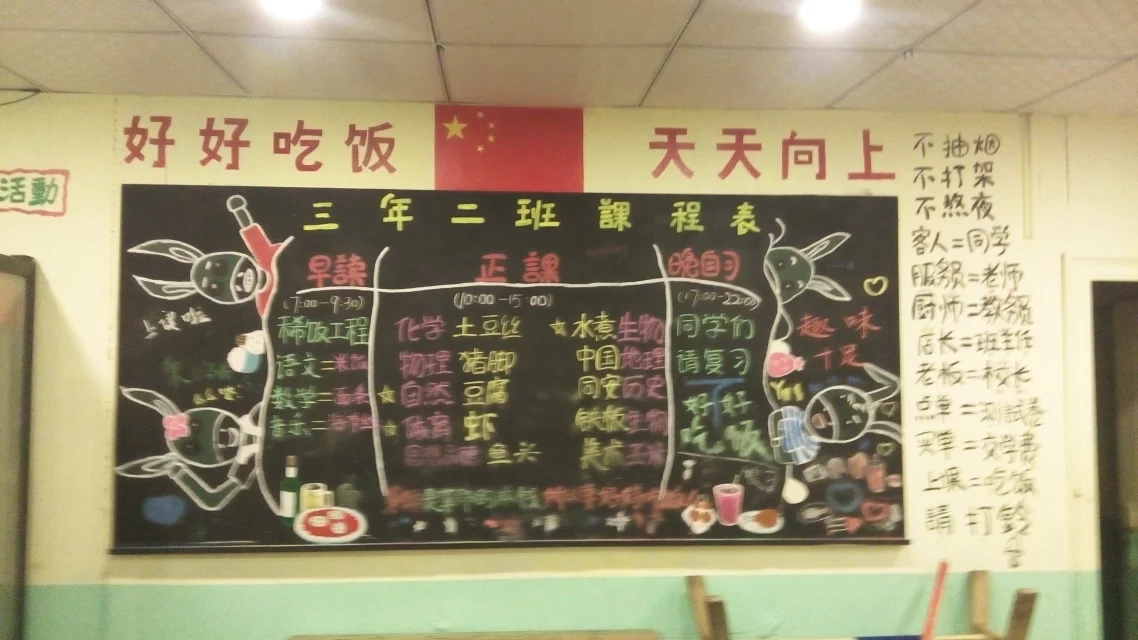 好好吃饭 天天向上
活動
三年二班課程表
早讀 正課 晚自习
(7:00-9:30) (10:00-15:00) (17:00-22:00)
稀饭工程 化学 土豆丝 水煮生物 同学们
语文=米饭 物理 猪脚 中国地理 请复习
数学=面条 自然 豆腐 同安历史 好好
音乐= 体育 虾 铁板生物 吃饭
鱼 美术
上课啦
趣味
十足
不抽烟
不打架
不熬夜
客人=同学
服务员=老师
厨师=教务员
店长=班主任
老板=校长
点单=测試卷
买单=交学费
上课=吃饭
請打鈴